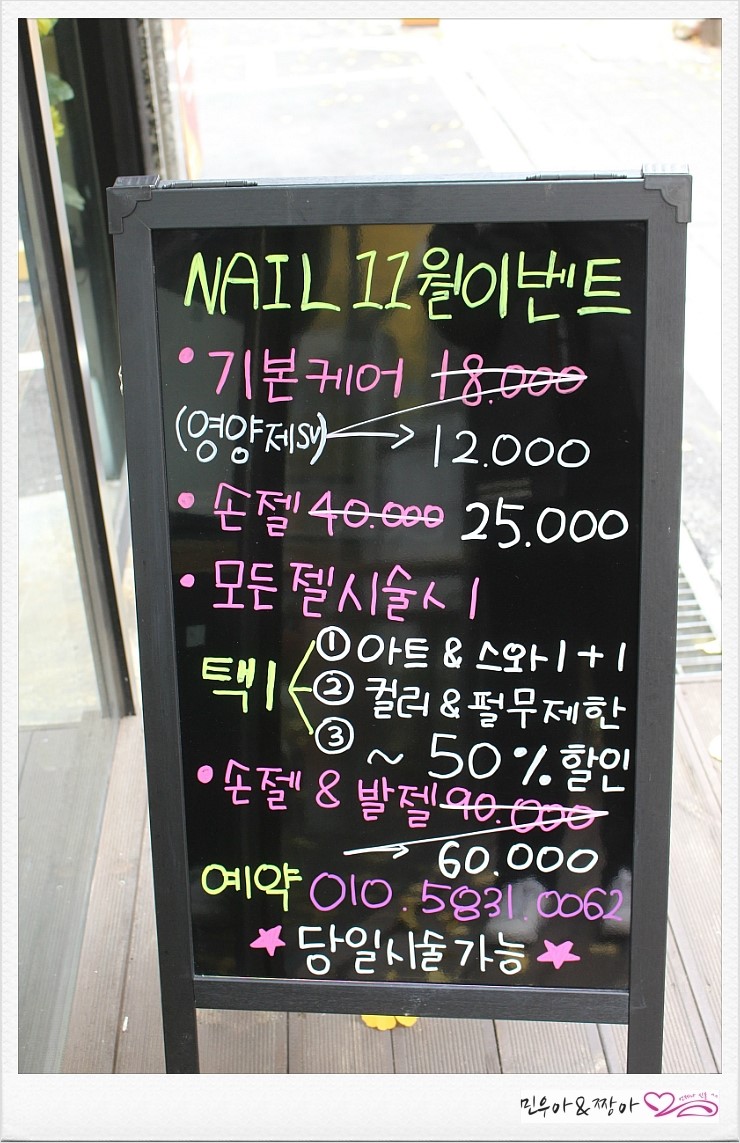 NAIL 11월이벤트
• 기본케어 18.000
(영양제SV) → 12.000
• 손젤 40.000 25.000
• 모든젤시술시
택1 ① 아트 & 스와 1+1
② 컬러 & 펄무제한
③ ~ 50% 할인
• 손젤 & 발젤 90.000
→ 60.000
예약 010.5831.0062
★ 당일시술가능 ★
민우아&짱아